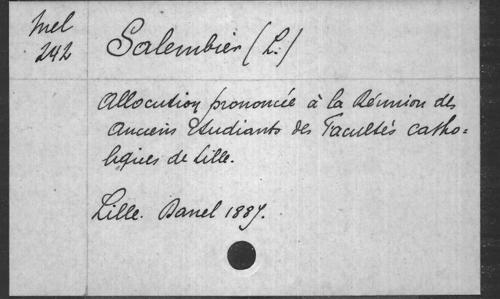 Mel
242
Salembier (L.)
Allocution prononcée à la Réunion des
anciens Etudiants des Facultés catho=
liques de Lille.
Lille. Danel 1887.